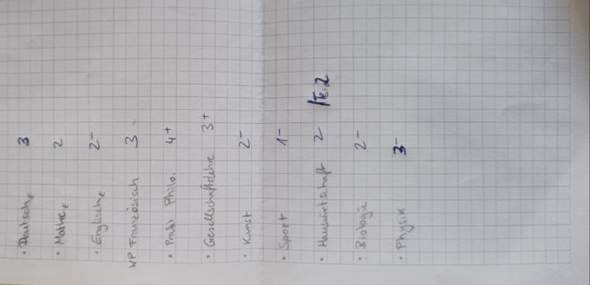 • Deutsch E 3
• Mathe E 2
• Englisch E 2-
WP Französisch 3
• Prakt. Philo. 4+
• Gesellschaftslehre 3+
• Kunst 2-
• Sport 1-
• Hauswirtschaft 2
• Biologie 2-
• Physik 3-